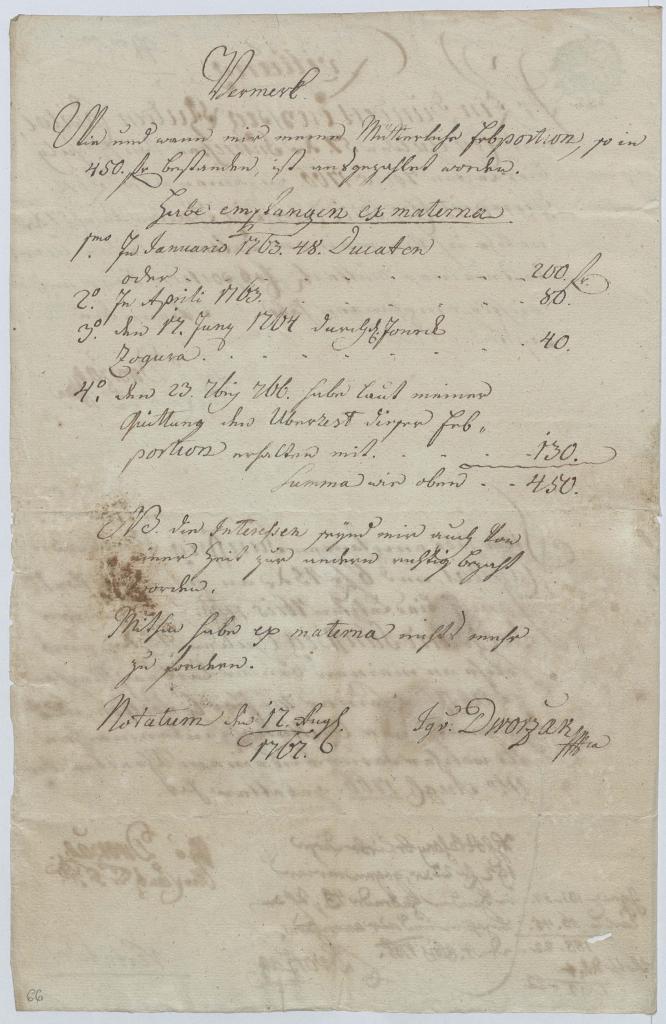 Vermerk.
Wie und wann mir meine Mütterliche Erbportion, so in
450. fr bestanden, ist ausgezahlet worden.
Habe empfangen ex materna
1mo In Januario 1763. 48. Ducaten
oder . . . . . . 200. fr.
2o. In Aprili 1763. . . . . . 80.
3o. den 17. Juny 1764 durch
Zogura. . . . . . . 40.
4o. den 23. 7bris 766. habe laut meiner
Quittung den Uberrest dieser Erb-
portion erhalten mit. . . . 130.
Summa wie oben . . 450.
NB. die Interessen seynd mir auch von
einer Zeit zur andern richtig bezahlt
worden.
Mithin habe ex materna nichts mehr
zu fordern.
Notatum den 12. Aug.
1767.
Ign: Dworzak
66